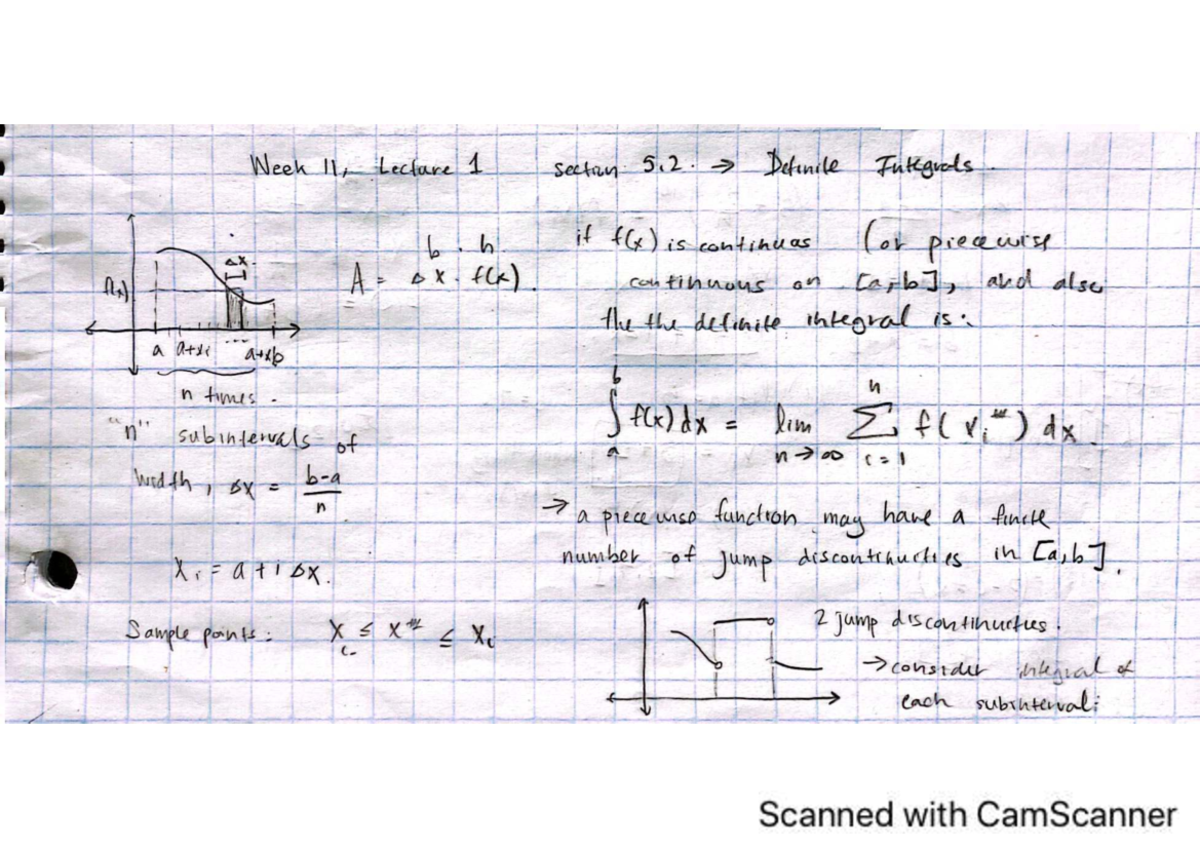 Week 11, Lecture 1 section 5.2. → Definite Integrals.
Δx.
f(x)
a a+xi ... a+xb
n times.
b . h
A = Δx . f(x).
"n" subintervals of
width, Δx = b-a/n
Xi = a + i Δx.
Sample points: X ≤ X* ≤ Xi
i-
if f(x) is continuas (or piecewise
continuous on [a,b], and also
the the definite integral is:
∫ₐᵇ f(x) dx = lim n→∞ Σ i=1 n f(xi*) dx.
→ a piecewise function may have a finite
number of jump discontinuities in [a,b].
2 jump discontinuities.
→ consider integral of
each subinterval:
Scanned with CamScanner